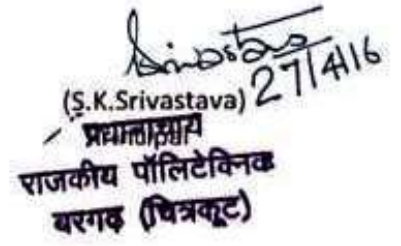 27/4/16
(S.K.Srivastava)
प्रधानाचार्य
राजकीय पॉलिटेक्निक
बरगढ़ (चित्रकूट)